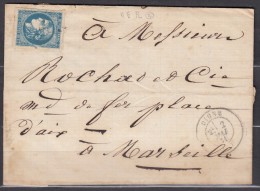 à Messieurs
Rochas et Cie
md de fer place
d'aix
à Marseille